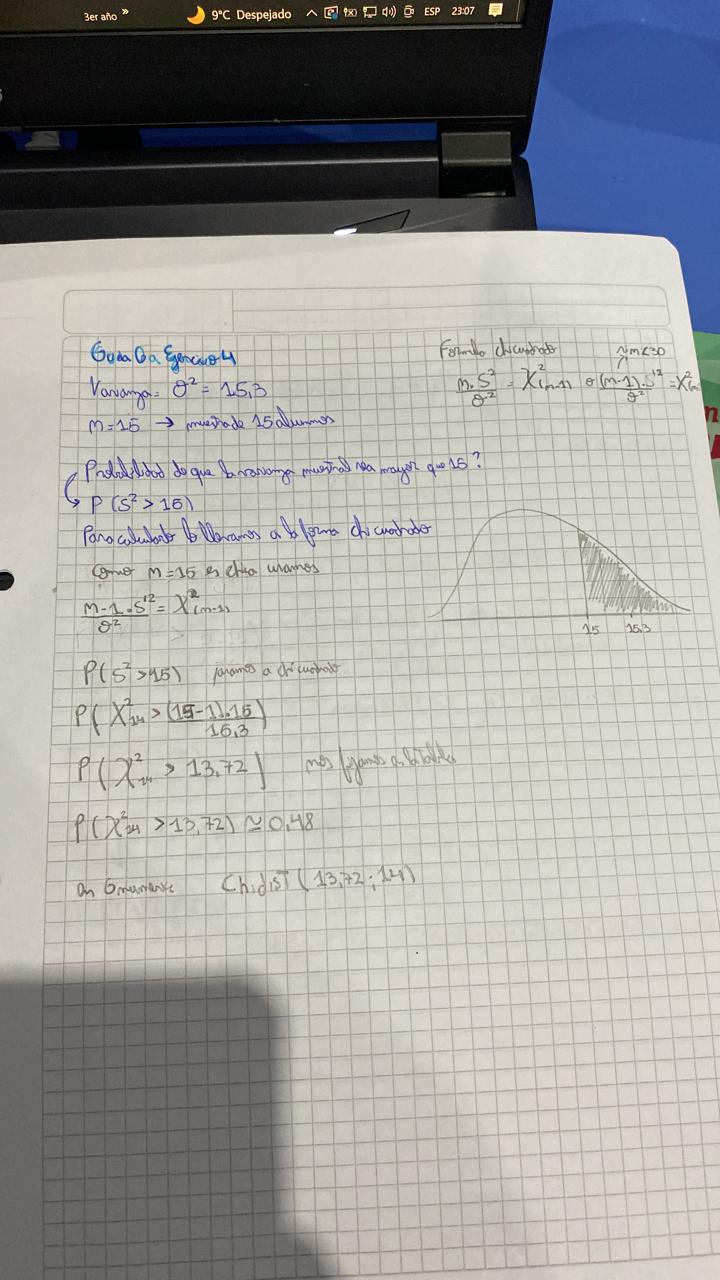 3er año » 9°C Despejado ESP 23:07
Guia Ejercicio 4
Varianza = σ² = 15,3
n=15 → muestra de 15 alumnos
Formula chicuadrado
n<30
n.S²/σ² = X²(n-1) o (n-1).S'²/σ² = X²(n
Probabilidad de que la varianza muestral sea mayor que 15?
P(S² > 15)
Para calcularlo lo llevamos a la forma chicuadrado
Como n=15 es chica usamos
n-1.S'²/σ² = X²(n-1)
15 15,3
P(S² >15) pasamos a chicuadrado
P(X²14 > (15-1).15/15,3)
P(X²14 > 13,72) nos fijamos en la tabla
P(X²14 >13,72) ≃ 0,48
ChidisT(13,72;14)